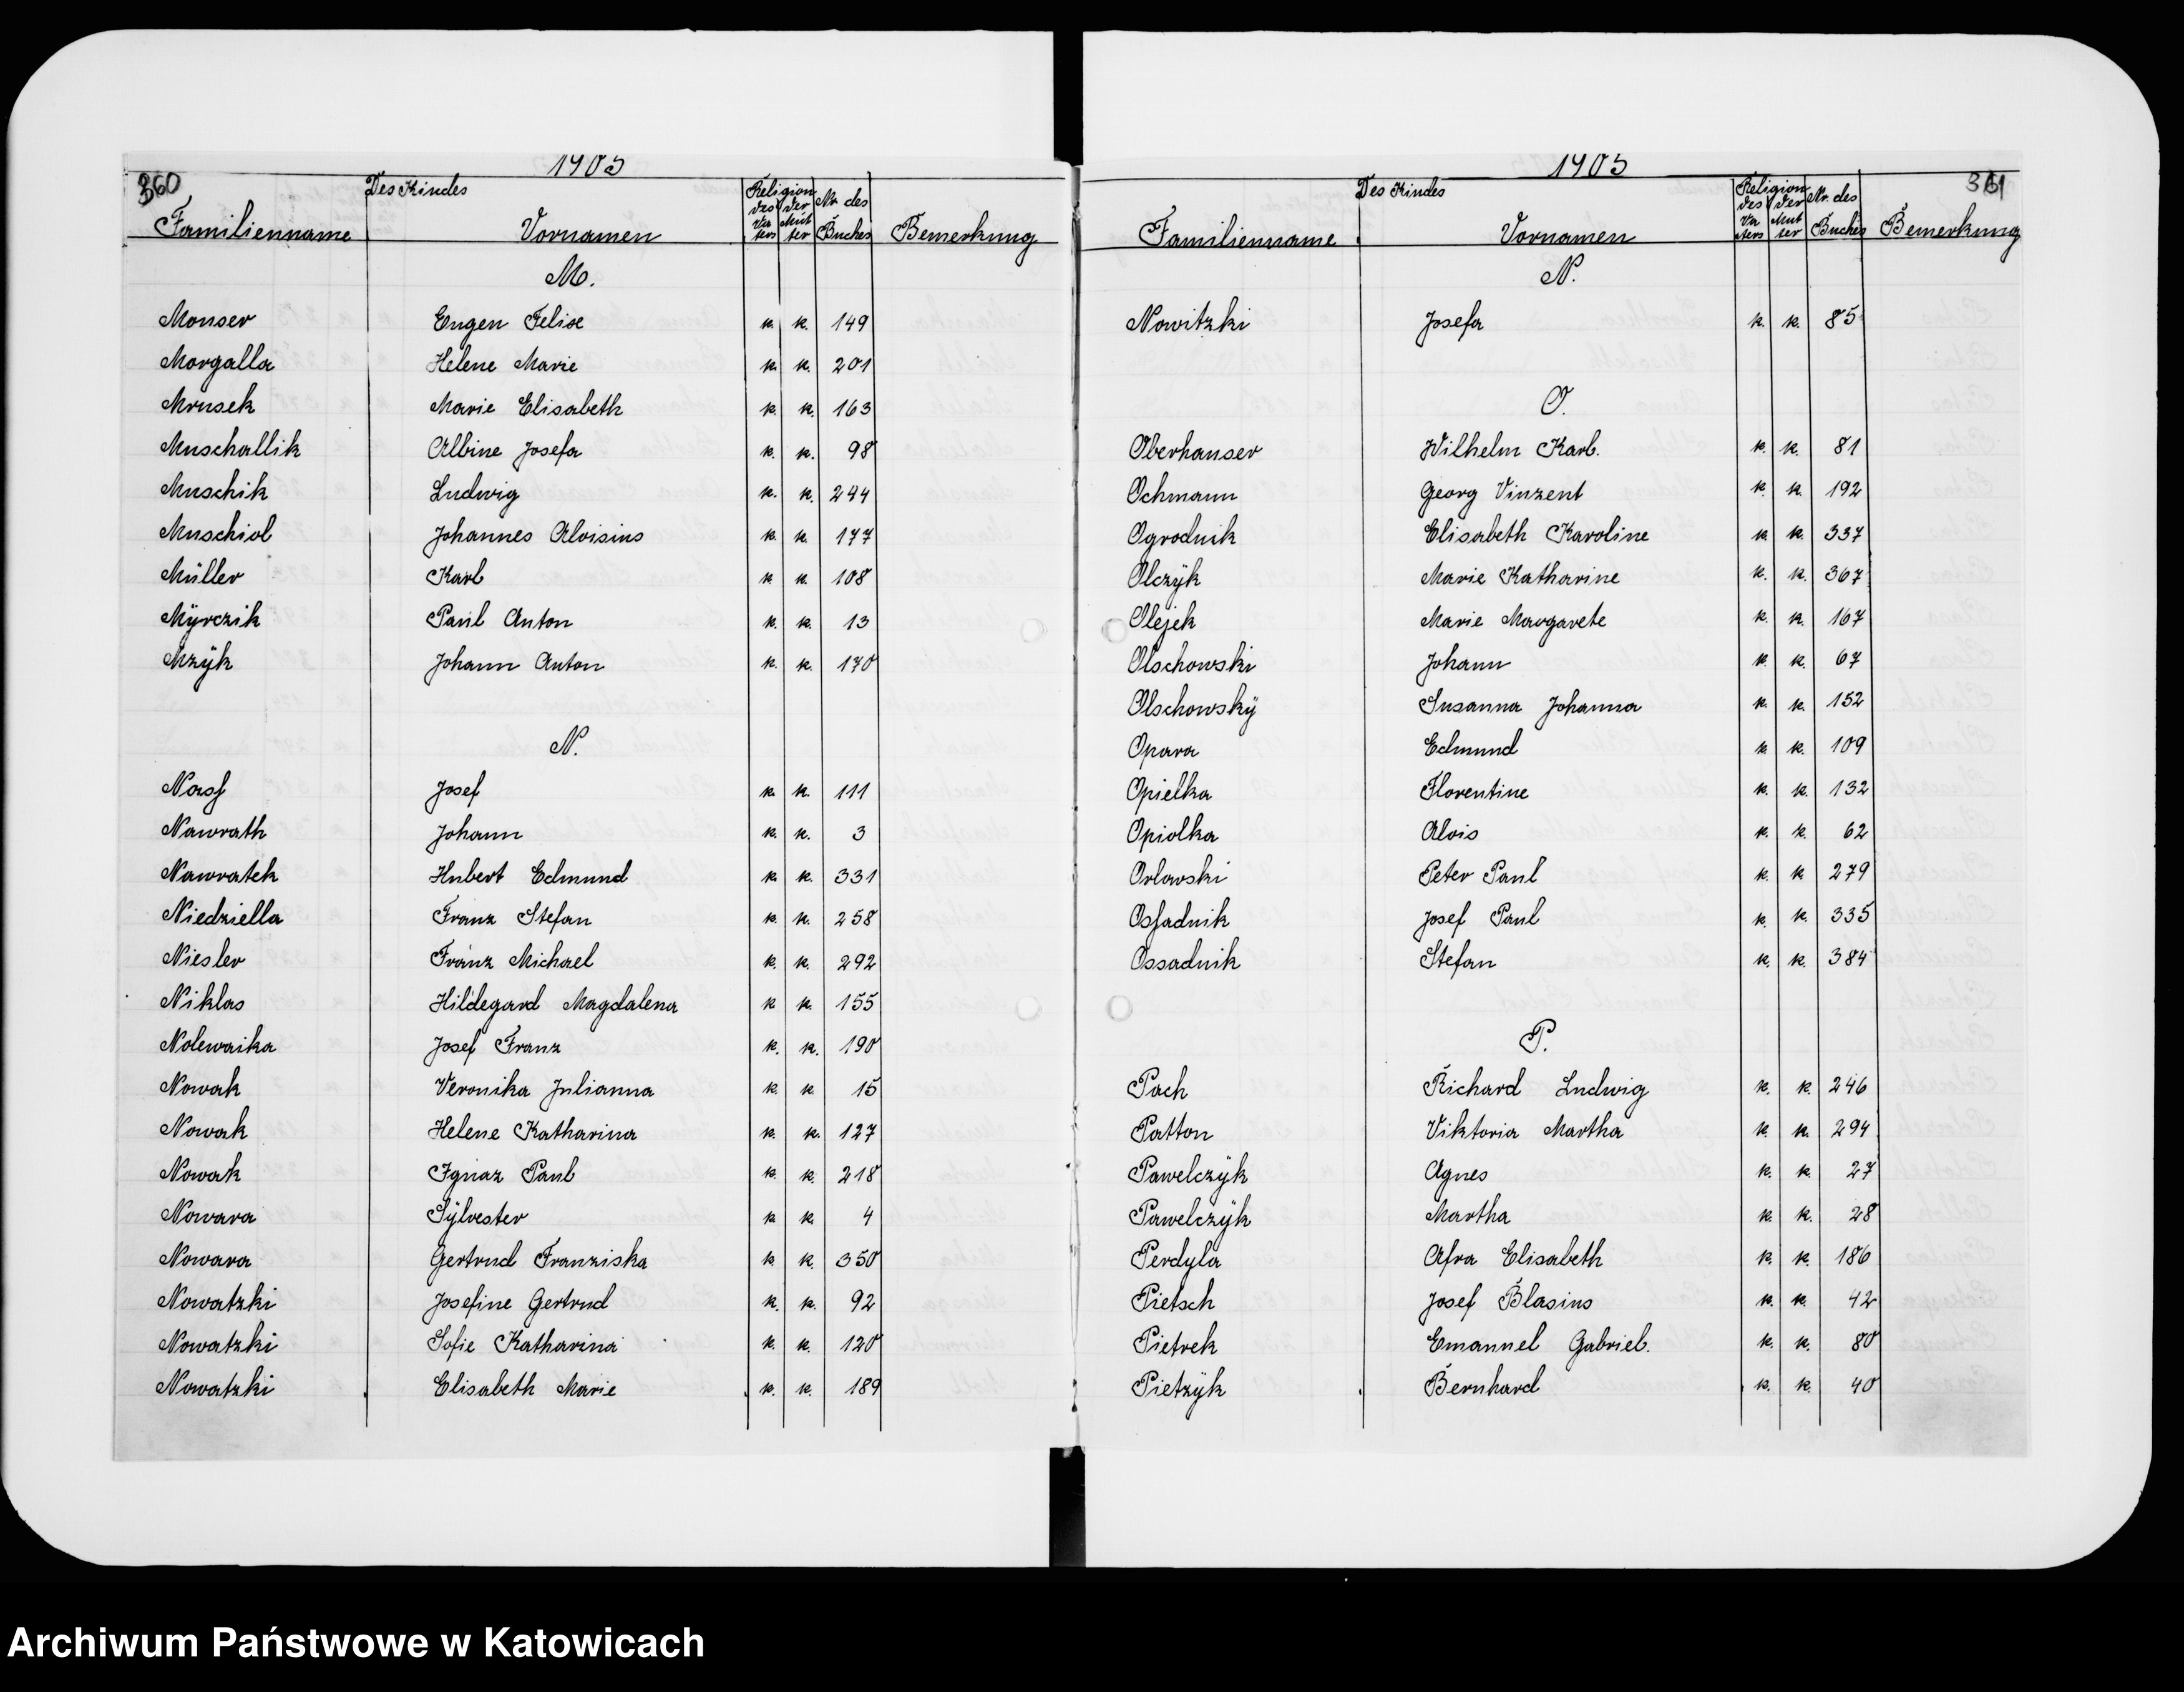 360
1905
Des Kindes
Religion des Vaters der Mutter
Nr. des Buches
Familienname Vornamen Bemerkung
M.
Monser Eugen Felise k. k. 149
Morgalla Helene Marie k. k. 201
Mrusek Marie Elisabeth k. k. 163
Muschallik Albine Josefa k. k. 98
Muschik Ludwig k. k. 244
Muschiol Johannes Aloisius k. k. 177
Müller Karl k k. 108
Mÿrczik Paul Anton k. k. 13
Mzÿk Johann Anton k. k. 170
N.
Nasf Josef k. k. 111
Nawrath Johann k. k. 3
Nawratek Hubert Edmund k. k. 331
Niedziella Franz Stefan k. k. 258
Niesler Franz Michael k. k. 292
Niklas Hildegard Magdalena k k. 155
Nolewaika Josef Franz k. k. 190
Nowak Veronika Julianna k. k. 15
Nowak Helene Katharina k. k. 127
Nowak Ignaz Paul k. k. 218
Nowara Sÿlvester k k. 4
Nowara Gertrud Franziska k. k. 350
Nowatzki Josefine Gertrud k. k. 92
Nowatzki Sofie Katharina k. k. 120
Nowatzki Elisabeth Marie k. k. 189
1905
361
Des Kindes
Religion des Vaters der Mutter
Nr. des Buches
Familienname Vornamen Bemerkung
N.
Nowitzki Josefa k. k. 85
O.
Oberhauser Wilhelm Karl. k. k. 81
Ochmann Georg Vinzent k. k. 192
Ogrodnik Elisabeth Karoline k. k. 337
Olczÿk Marie Katharine k. k. 367
Olejek Marie Margarete k. k. 167
Olschowski Johann k. k. 67
Olschowskÿ Susanna Johanna k. k. 152
Opara Edmund k. k. 109
Opielka Florentine k. k. 132
Opiolka Alois k. k. 62
Orlowski Peter Paul k. k 279
Osfadnik Josef Paul k. k. 335
Ossadnik Stefan k. k. 384
P.
Pach Richard Ludwig k. k. 246
Patton Viktoria Martha k. k. 294
Pawelczÿk Agnes k. k. 27
Pawelczÿk Martha k. k. 28
Perdyla Afra Elisabeth k. k. 186
Pietsch Josef Blasius k. k. 42
Pietrek Emanuel Gabriel. k. k. 80
Pietzÿk Bernhard k. k. 40
Archiwum Państwowe w Katowicach